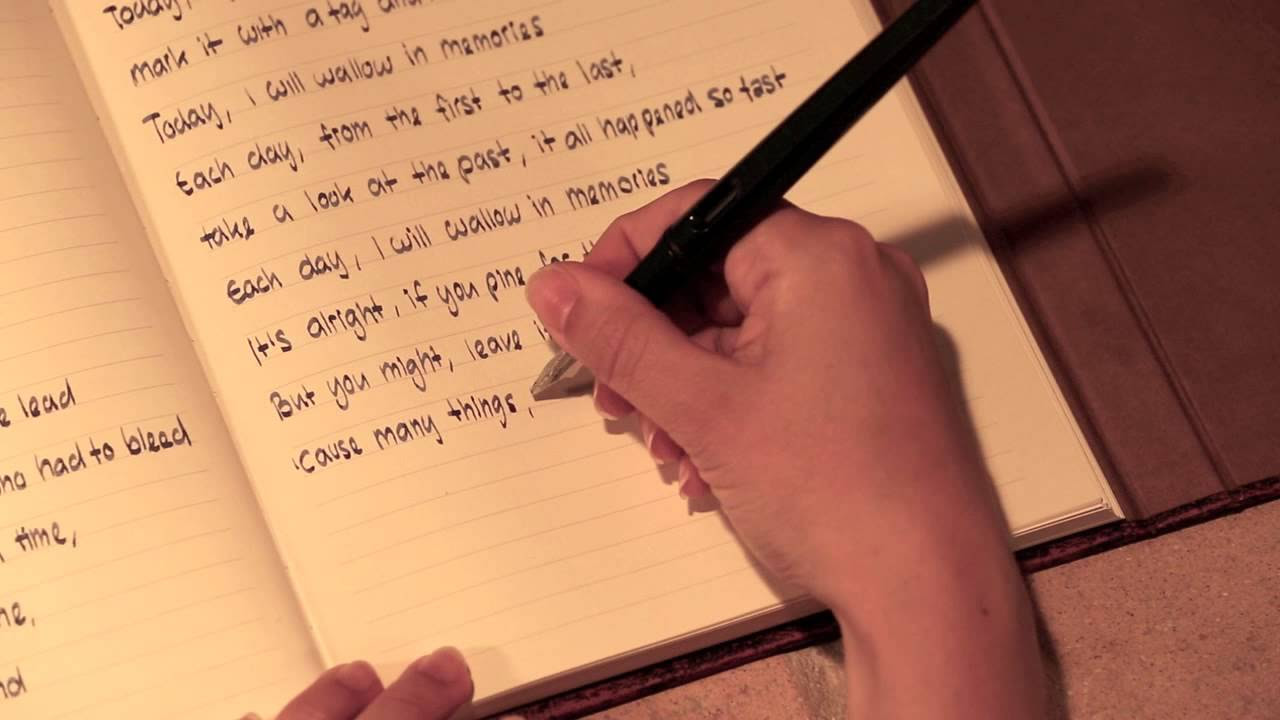 e lead
had to bleed
time,
Today,
mark it with a tag and
Today, I will wallow in memories
Each day, from the first to the last,
take a look at the past, it all happened so fast
Each day, I will wallow in memories
It's alright, if you pine for
But you might, leave
'cause many things,